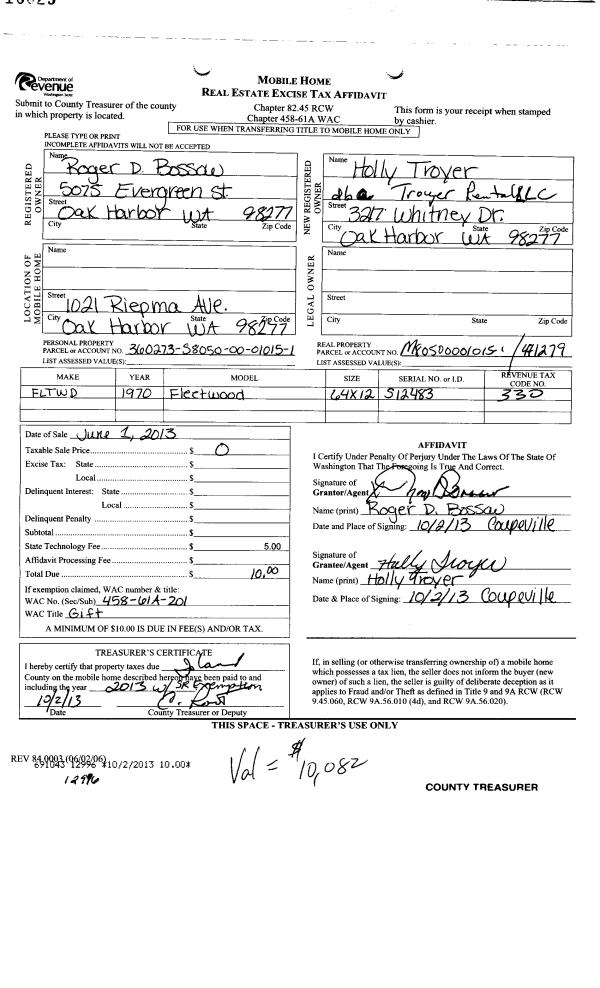 Department of
Revenue
Washington State
Submit to County Treasurer of the county
in which property is located.
MOBILE HOME
REAL ESTATE EXCISE TAX AFFIDAVIT
Chapter 82.45 RCW
Chapter 458-61A WAC
This form is your receipt when stamped
by cashier.
FOR USE WHEN TRANSFERRING TITLE TO MOBILE HOME ONLY
PLEASE TYPE OR PRINT
INCOMPLETE AFFIDAVITS WILL NOT BE ACCEPTED
REGISTERED OWNER
Name Roger D. Bossaw
5075 Evergreen St.
Street
Oak Harbor WA 98277
City State Zip Code
NEW REGISTERED OWNER
Name Holly Troyer
dba Troyer Rental LLC
Street 3217 Whitney Dr.
City Oak Harbor WA 98277
State Zip Code
LOCATION OF MOBILE HOME
Name
Street 1021 Riepma Ave.
Oak Harbor WA 98277
City State Zip Code
LEGAL OWNER
Name
Street
City State Zip Code
PERSONAL PROPERTY
PARCEL or ACCOUNT NO. 360273-S8050-00-01015-1
LIST ASSESSED VALUE(S):
REAL PROPERTY
PARCEL or ACCOUNT NO. 471279
LIST ASSESSED VALUE(S):
MAKE YEAR MODEL SIZE SERIAL NO. or I.D. REVENUE TAX CODE NO.
FLTWD 1970 Fleetwood 64X12 S12483 330
Date of Sale June 1, 2013
Taxable Sale Price $ 0
Excise Tax: State $
Local $
Delinquent Interest: State $
Local $
Delinquent Penalty $
Subtotal $
State Technology Fee $ 5.00
Affidavit Processing Fee $
Total Due $ 10.00
If exemption claimed, WAC number & title:
WAC No. (Sec/Sub) 458-61A-201
WAC Title Gift
A MINIMUM OF $10.00 IS DUE IN FEE(S) AND/OR TAX.
AFFIDAVIT
I Certify Under Penalty Of Perjury Under The Laws Of The State Of
Washington That The Foregoing Is True And Correct.
Signature of
Grantor/Agent
Name (print) Roger D. Bossaw
Date and Place of Signing: 10/2/13 Coupeville
Signature of
Grantee/Agent Holly Troyer
Name (print) Holly Troyer
Date & Place of Signing: 10/2/13 Coupeville
TREASURER'S CERTIFICATE
I hereby certify that property taxes due Island
County on the mobile home described hereon have been paid to and
including the year 2013 w/ SR Exemption
10/2/13
Date County Treasurer or Deputy
If, in selling (or otherwise transferring ownership of) a mobile home
which possesses a tax lien, the seller does not inform the buyer (new
owner) of such a lien, the seller is guilty of deliberate deception as it
applies to Fraud and/or Theft as defined in Title 9 and 9A RCW (RCW
9.45.060, RCW 9A.56.010 (4d), and RCW 9A.56.020).
THIS SPACE - TREASURER'S USE ONLY
REV 84 0003 (06/02/06)
691043 12996 *10/2/2013 10.00*
12996
Val = $10,082
COUNTY TREASURER